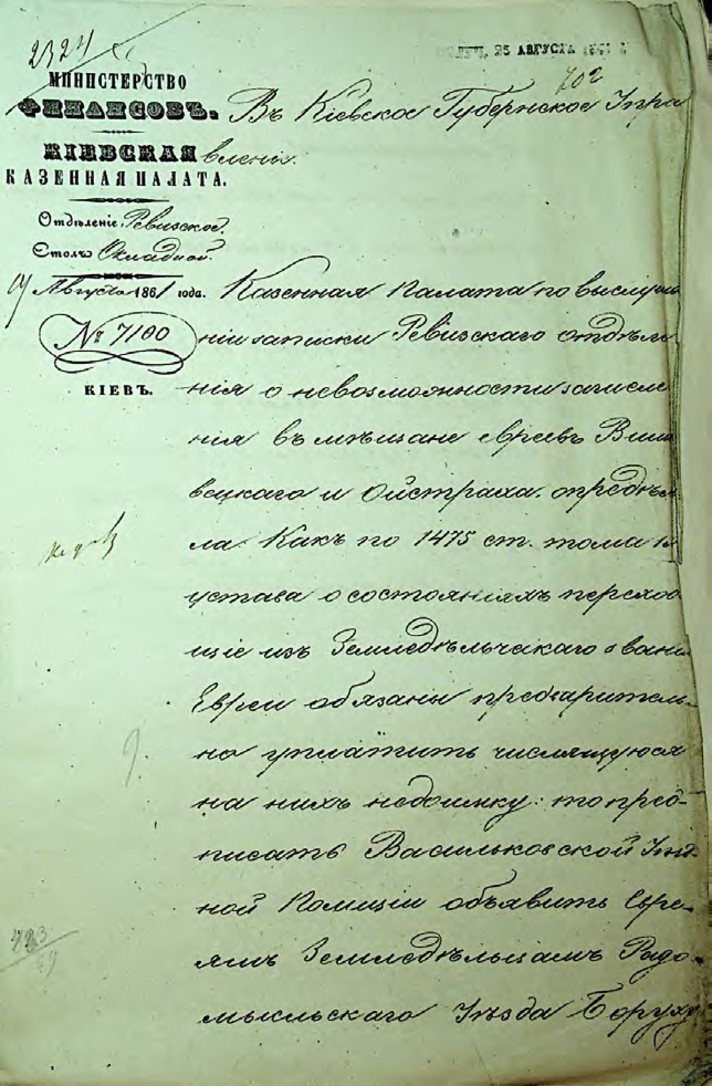 2324
25 АВГУСТА
702
МИНИСТЕРСТВО
ФИНАНСОВЪ.
КІЕВСКАЯ
КАЗЕННАЯ ПАЛАТА.
Отдѣленіе Ревизское.
Столъ Окладной.
Августа 1861 года.
№ 7100
КІЕВЪ.
Въ Кіевское Губернское Пра
вленіе.
Казенная Палата по выслуша
ніи записки Ревизскаго отдѣле
нія о невозможности зачисле
нія въ мѣщане евреевъ Виш
вецкаго и Ойстраха. опредѣли
ла. Какъ по 1475 ст. тома
устава о состояніяхъ перехо
щіе изъ Земледѣльческаго званія
Евреи обязаны предварительно
но уплатить числящуюся
на нихъ недоимку: то пред-
писать Васильковской
ной Полиціи объявить Евре-
ямъ Земледѣльцамъ Радо-
мысльскаго Уѣзда Боруху